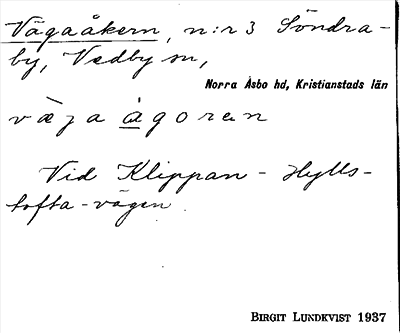 Vägaåkern, n:r 3 Söndra-
by, Vedby sn,
Norra Åsbo hd, Kristianstads län
Vid Klippan - Hylls-
tofta-vägen.
BIRGIT LUNDKVIST 1937